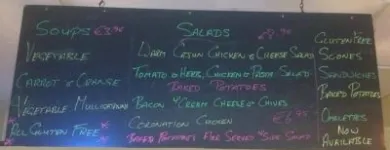 Soups £3.90
Vegetable
Carrot & Orange
Vegetable Mulligatawny
All Gluten Free
Salads £8.90
Warm Cajun Chicken & Cheese Salad
Tomato & Herb, Chicken & Pasta Salad
Baked Potatoes
Bacon, Cream Cheese & Chives
Coronation Chicken £6.95
Baked Potatoes Are Served w/ Side Salad
Gluten Free
Scones
Sandwiches
Baked Potatoes
Omelettes
Now
Available